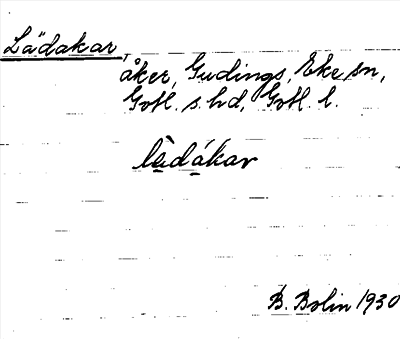 Lädakar,
åker, Gudings, Eke sn,
Gotl. s. hd, Gotl. l.
lädákar
B. Bolin 1930